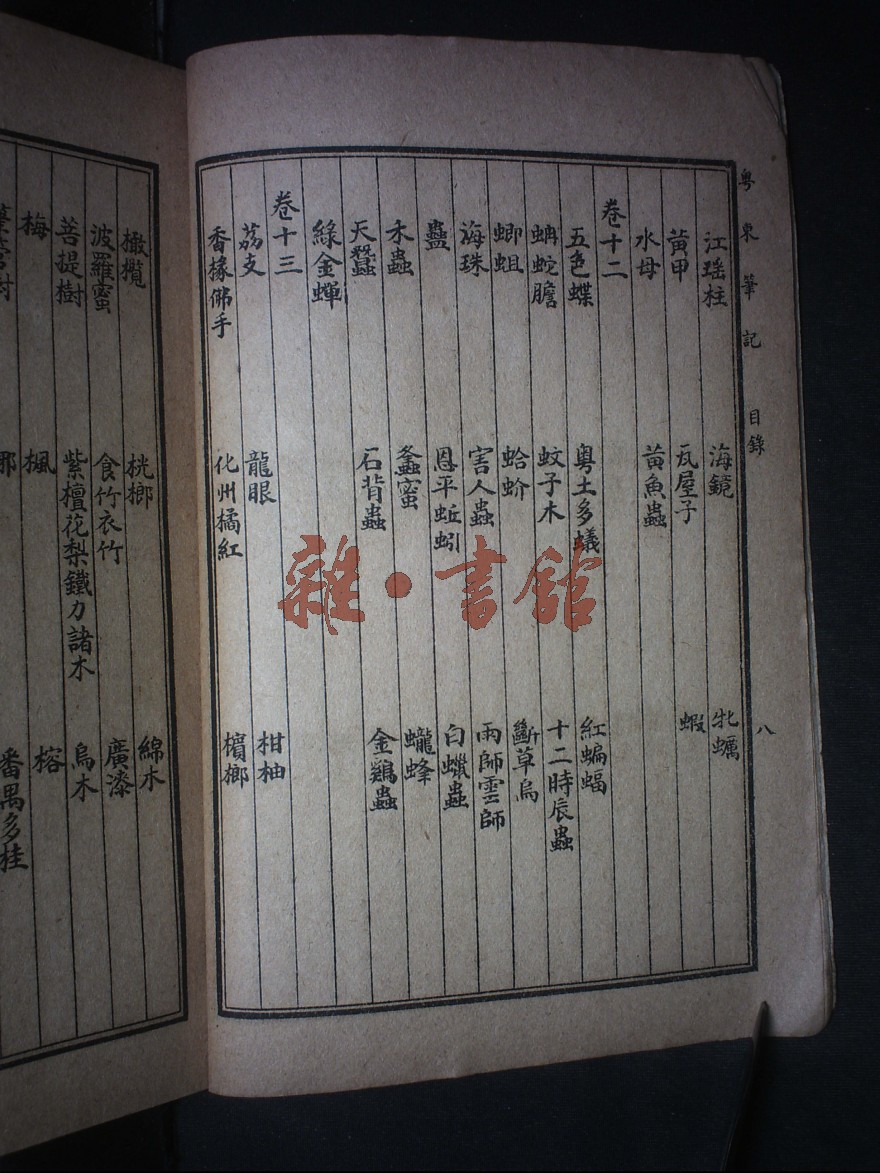 粤東筆記 目錄 八
江瑶柱 海鏡 牡蠣
黃甲 瓦屋子 蝦
水母 黃魚蟲
卷十二
五色蝶 粤土多蟻 紅蝙蝠
蚺蛇膽 蚊子木 十二時辰蟲
蝍蛆 蛤蚧 斷草烏
海珠 害人蟲 雨師雲師
蠱 恩平蚯蚓 白蠟蟲
禾蟲 蠭蜜 蠬蜂
天蠶 石背蟲 金鷄蟲
綠金蟬
卷十三
荔支 龍眼 柑柚
香櫞佛手 化州橘紅 檳榔
橄欖 桄榔 綿木
波羅蜜 食竹衣竹 廣漆
菩提樹 紫檀花梨鐵力諸木 烏木
梅 楓 榕
番禺多桂
雜·書館